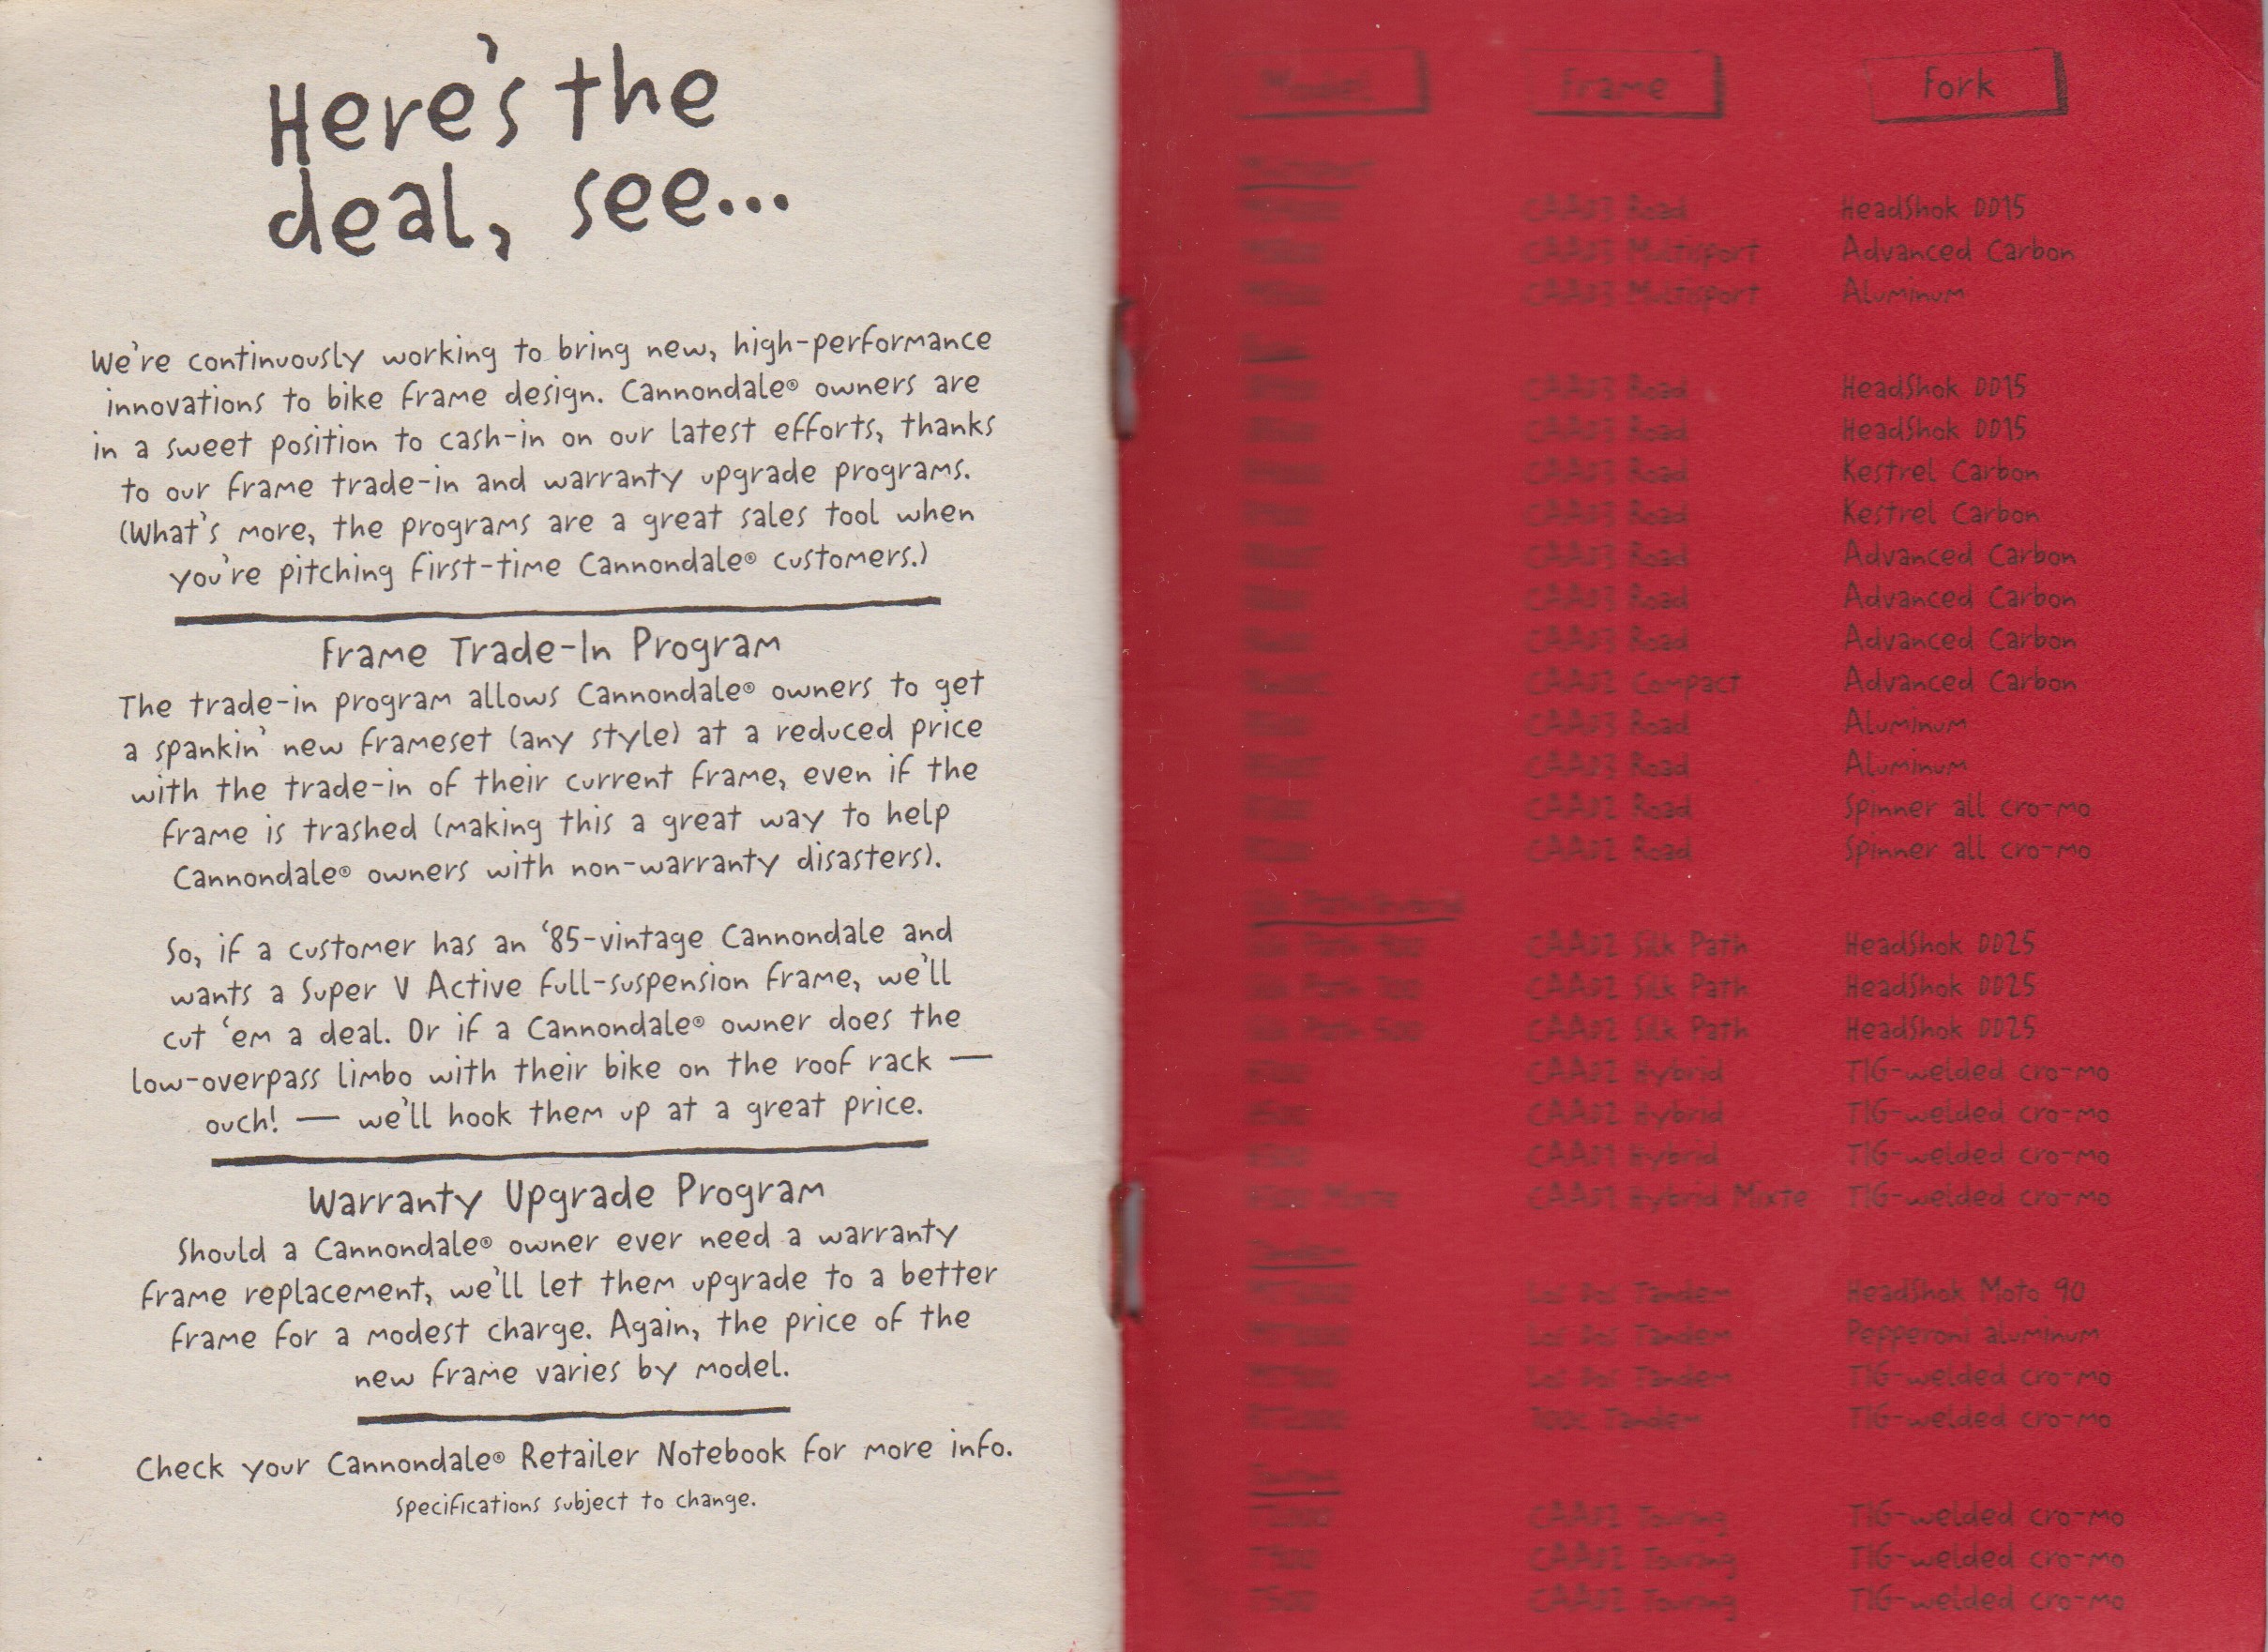 Here's the
deal, see...
We're continuously working to bring new, high-performance
innovations to bike frame design. Cannondale® owners are
in a sweet position to cash-in on our latest efforts, thanks
to our frame trade-in and warranty upgrade programs.
(What's more, the programs are a great sales tool when
you're pitching first-time Cannondale® customers.)
Frame Trade-In Program
The trade-in program allows Cannondale® owners to get
a spankin' new frameset (any style) at a reduced price
with the trade-in of their current frame, even if the
frame is trashed (making this a great way to help
Cannondale® owners with non-warranty disasters).
So, if a customer has an '85-vintage Cannondale and
wants a Super V Active full-suspension frame, we'll
cut 'em a deal. Or if a Cannondale® owner does the
low-overpass limbo with their bike on the roof rack —
ouch! — we'll hook them up at a great price.
Warranty Upgrade Program
Should a Cannondale® owner ever need a warranty
frame replacement, we'll let them upgrade to a better
frame for a modest charge. Again, the price of the
new frame varies by model.
Check your Cannondale® Retailer Notebook for more info.
Specifications subject to change.
Model Frame Fork
CAAD3 Road HeadShok DD15
CAAD3 Multisport Advanced Carbon
CAAD3 Multisport Aluminum
CAAD3 Road HeadShok DD15
CAAD3 Road HeadShok DD15
CAAD3 Road Kestrel Carbon
CAAD3 Road Kestrel Carbon
CAAD3 Road Advanced Carbon
CAAD3 Road Advanced Carbon
CAAD3 Road Advanced Carbon
CAAD2 Compact Advanced Carbon
CAAD3 Road Aluminum
CAAD3 Road Aluminum
CAAD2 Road Spinner all cro-mo
CAAD2 Road Spinner all cro-mo
CAAD2 Silk Path HeadShok DD25
CAAD2 Silk Path HeadShok DD25
CAAD2 Silk Path HeadShok DD25
CAAD2 Hybrid TIG-welded cro-mo
CAAD2 Hybrid TIG-welded cro-mo
CAAD1 Hybrid TIG-welded cro-mo
Mixte CAAD1 Hybrid Mixte TIG-welded cro-mo
Los Dos Tandem HeadShok Moto 90
Los Dos Tandem Pepperoni aluminum
Los Dos Tandem TIG-welded cro-mo
Tandem TIG-welded cro-mo
CAAD2 Touring TIG-welded cro-mo
CAAD2 Touring TIG-welded cro-mo
CAAD2 Touring TIG-welded cro-mo